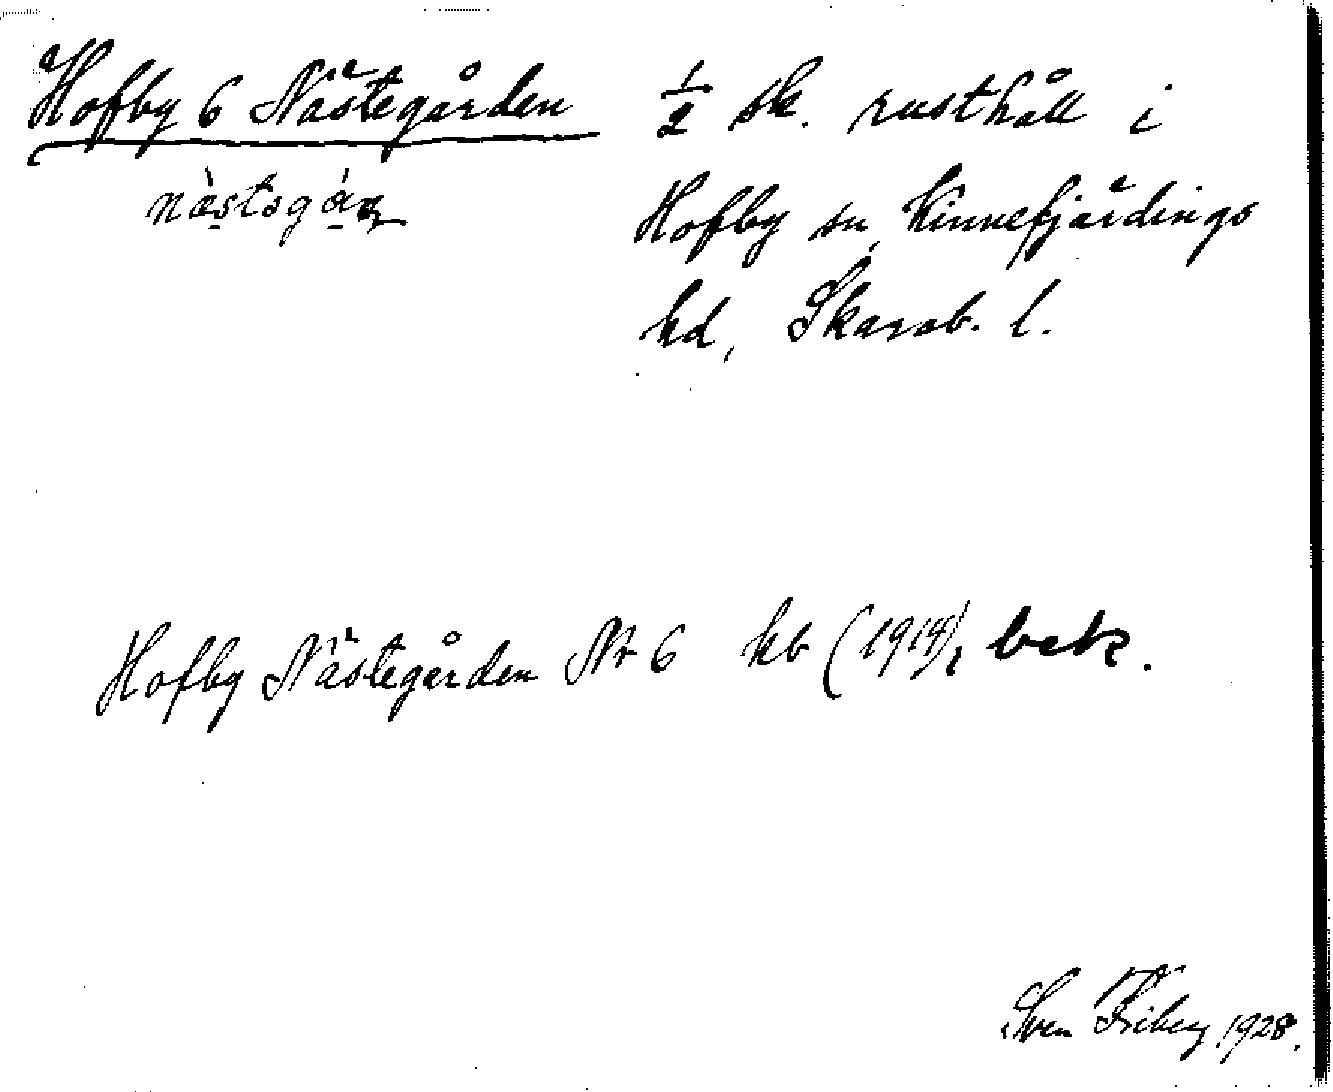 Hofby 6 Nästegården
nästsgá
1/2 sk. rusthåll i
Hofby sn, Kinnefjärdings
hd, Skarab. l.
Hofby Nästegården Nr 6 kb (1919), bek.
Sven Friberg 1928.